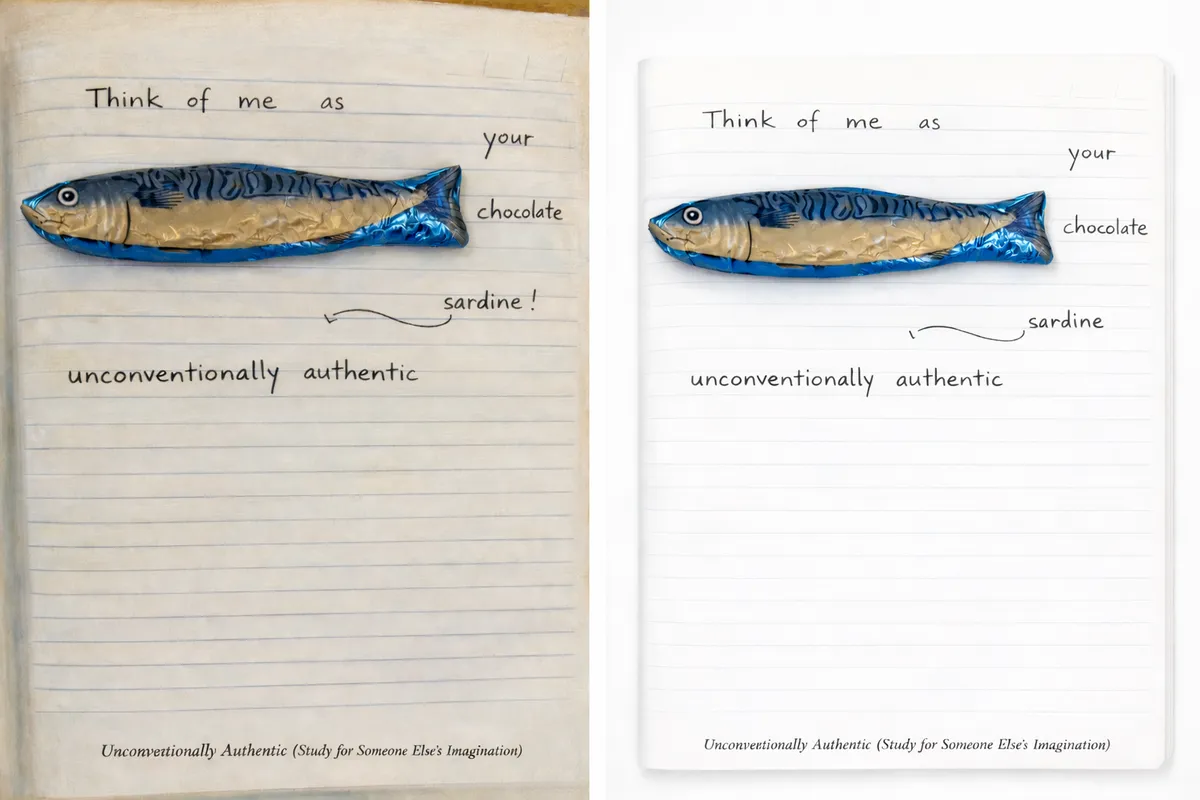 Think of me as
your
chocolate
sardine !
unconventionally authentic
Unconventionally Authentic (Study for Someone Else's Imagination)
Think of me as
your
chocolate
sardine
unconventionally authentic
Unconventionally Authentic (Study for Someone Else's Imagination)